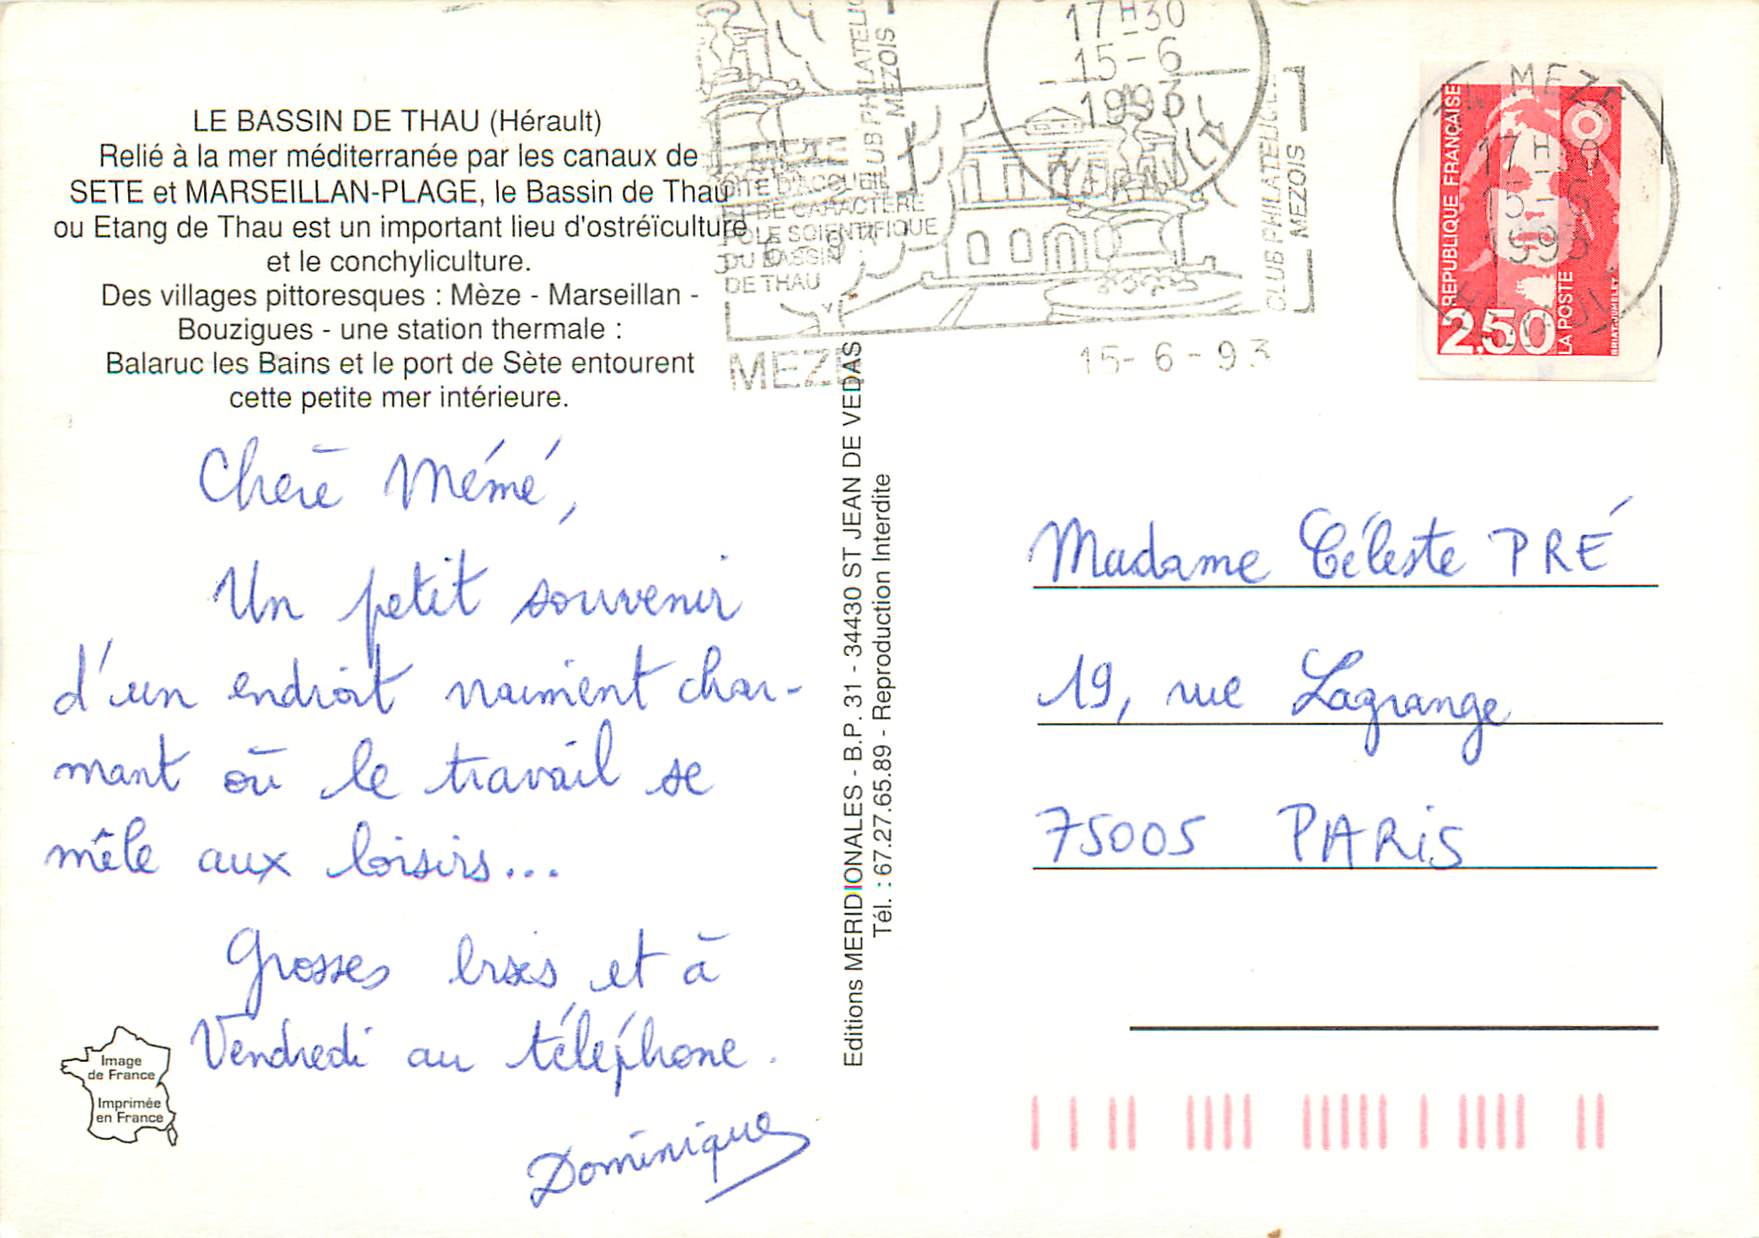 LE BASSIN DE THAU (Hérault)
Relié à la mer méditerranée par les canaux de
SETE et MARSEILLAN-PLAGE, le Bassin de Thau
ou Etang de Thau est un important lieu d'ostréïculture
et le conchyliculture.
Des villages pittoresques : Mèze - Marseillan -
Bouzigues - une station thermale :
Balaruc les Bains et le port de Sète entourent
cette petite mer intérieure.
Chère Mémé,
Un petit souvenir
d'un endroit vraiment char-
mant où le travail se
mêle aux loisirs...
Grosses bises et à
Vendredi au téléphone.
Dominique
Image
de France
Imprimée
en France
Editions MERIDIONALES - B.P. 31 - 34430 ST JEAN DE VEDAS
Tél. : 67.27.65.89 - Reproduction Interdite
CLUB PHILATELIQUE
MEZOIS
ET DE CARACTERE
POLE SCIENTIFIQUE
DU BASSIN
DE THAU
MEZE
17H30
15-6
1993
CLUB PHILATELIQUE
MEZOIS
15-6-93
MEZE
17H30
15-6
1993
REPUBLIQUE FRANÇAISE
2,50
LA POSTE
BRIAT-JUMELET
Madame Céleste PRÉ
19, rue Lagrange
75005 PARIS